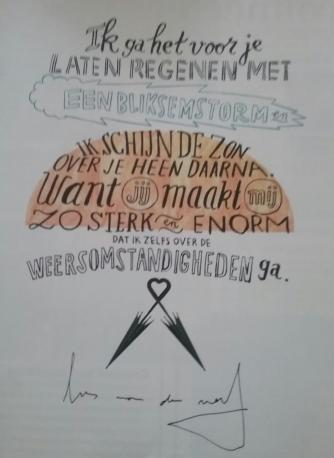 Ik ga het voor je
LATEN REGENEN MET
EEN BLIKSEMSTORM en
IK SCHIJN DE ZON
OVER JE HEEN DAARNA.
Want jij maakt mij
ZO STERK en ENORM
DAT IK ZELFS OVER DE
WEERSOMSTANDIGHEDEN ga.